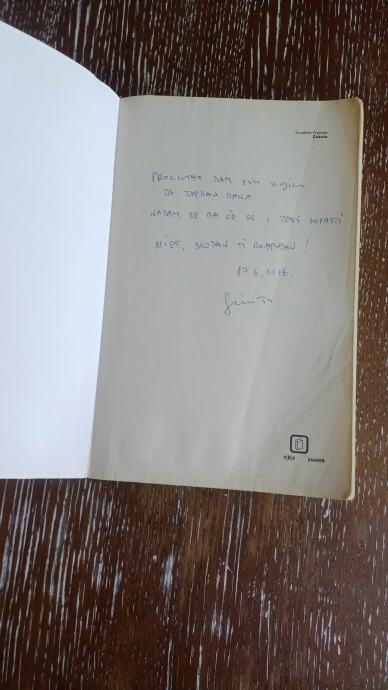 Jonathan Franzen
PROGUTAO SAM OVU KNJIGU
ZA TJEDAN DANA.
NADAM SE DA ĆE SE I TEBI DOPASTI
SRETAN TI ROĐENDAN!
17.6.2016.
v|b|z ZAGREB